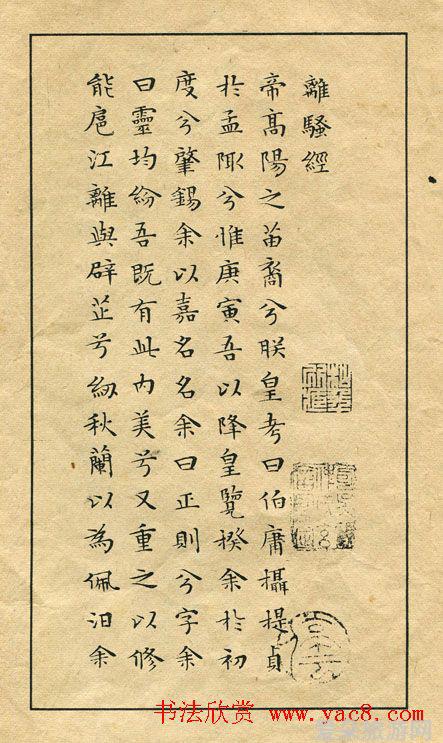 離騷經
帝髙陽之苗裔兮朕皇考曰伯庸攝提貞
於孟陬兮惟庚寅吾以降皇覽揆余於初
度兮肇錫余以嘉名名余曰正則兮字余
曰靈均紛吾既有此内美兮又重之以修
能扈江離與辟芷兮紉秋蘭以為佩汩余
书法欣赏 www.yac8.com